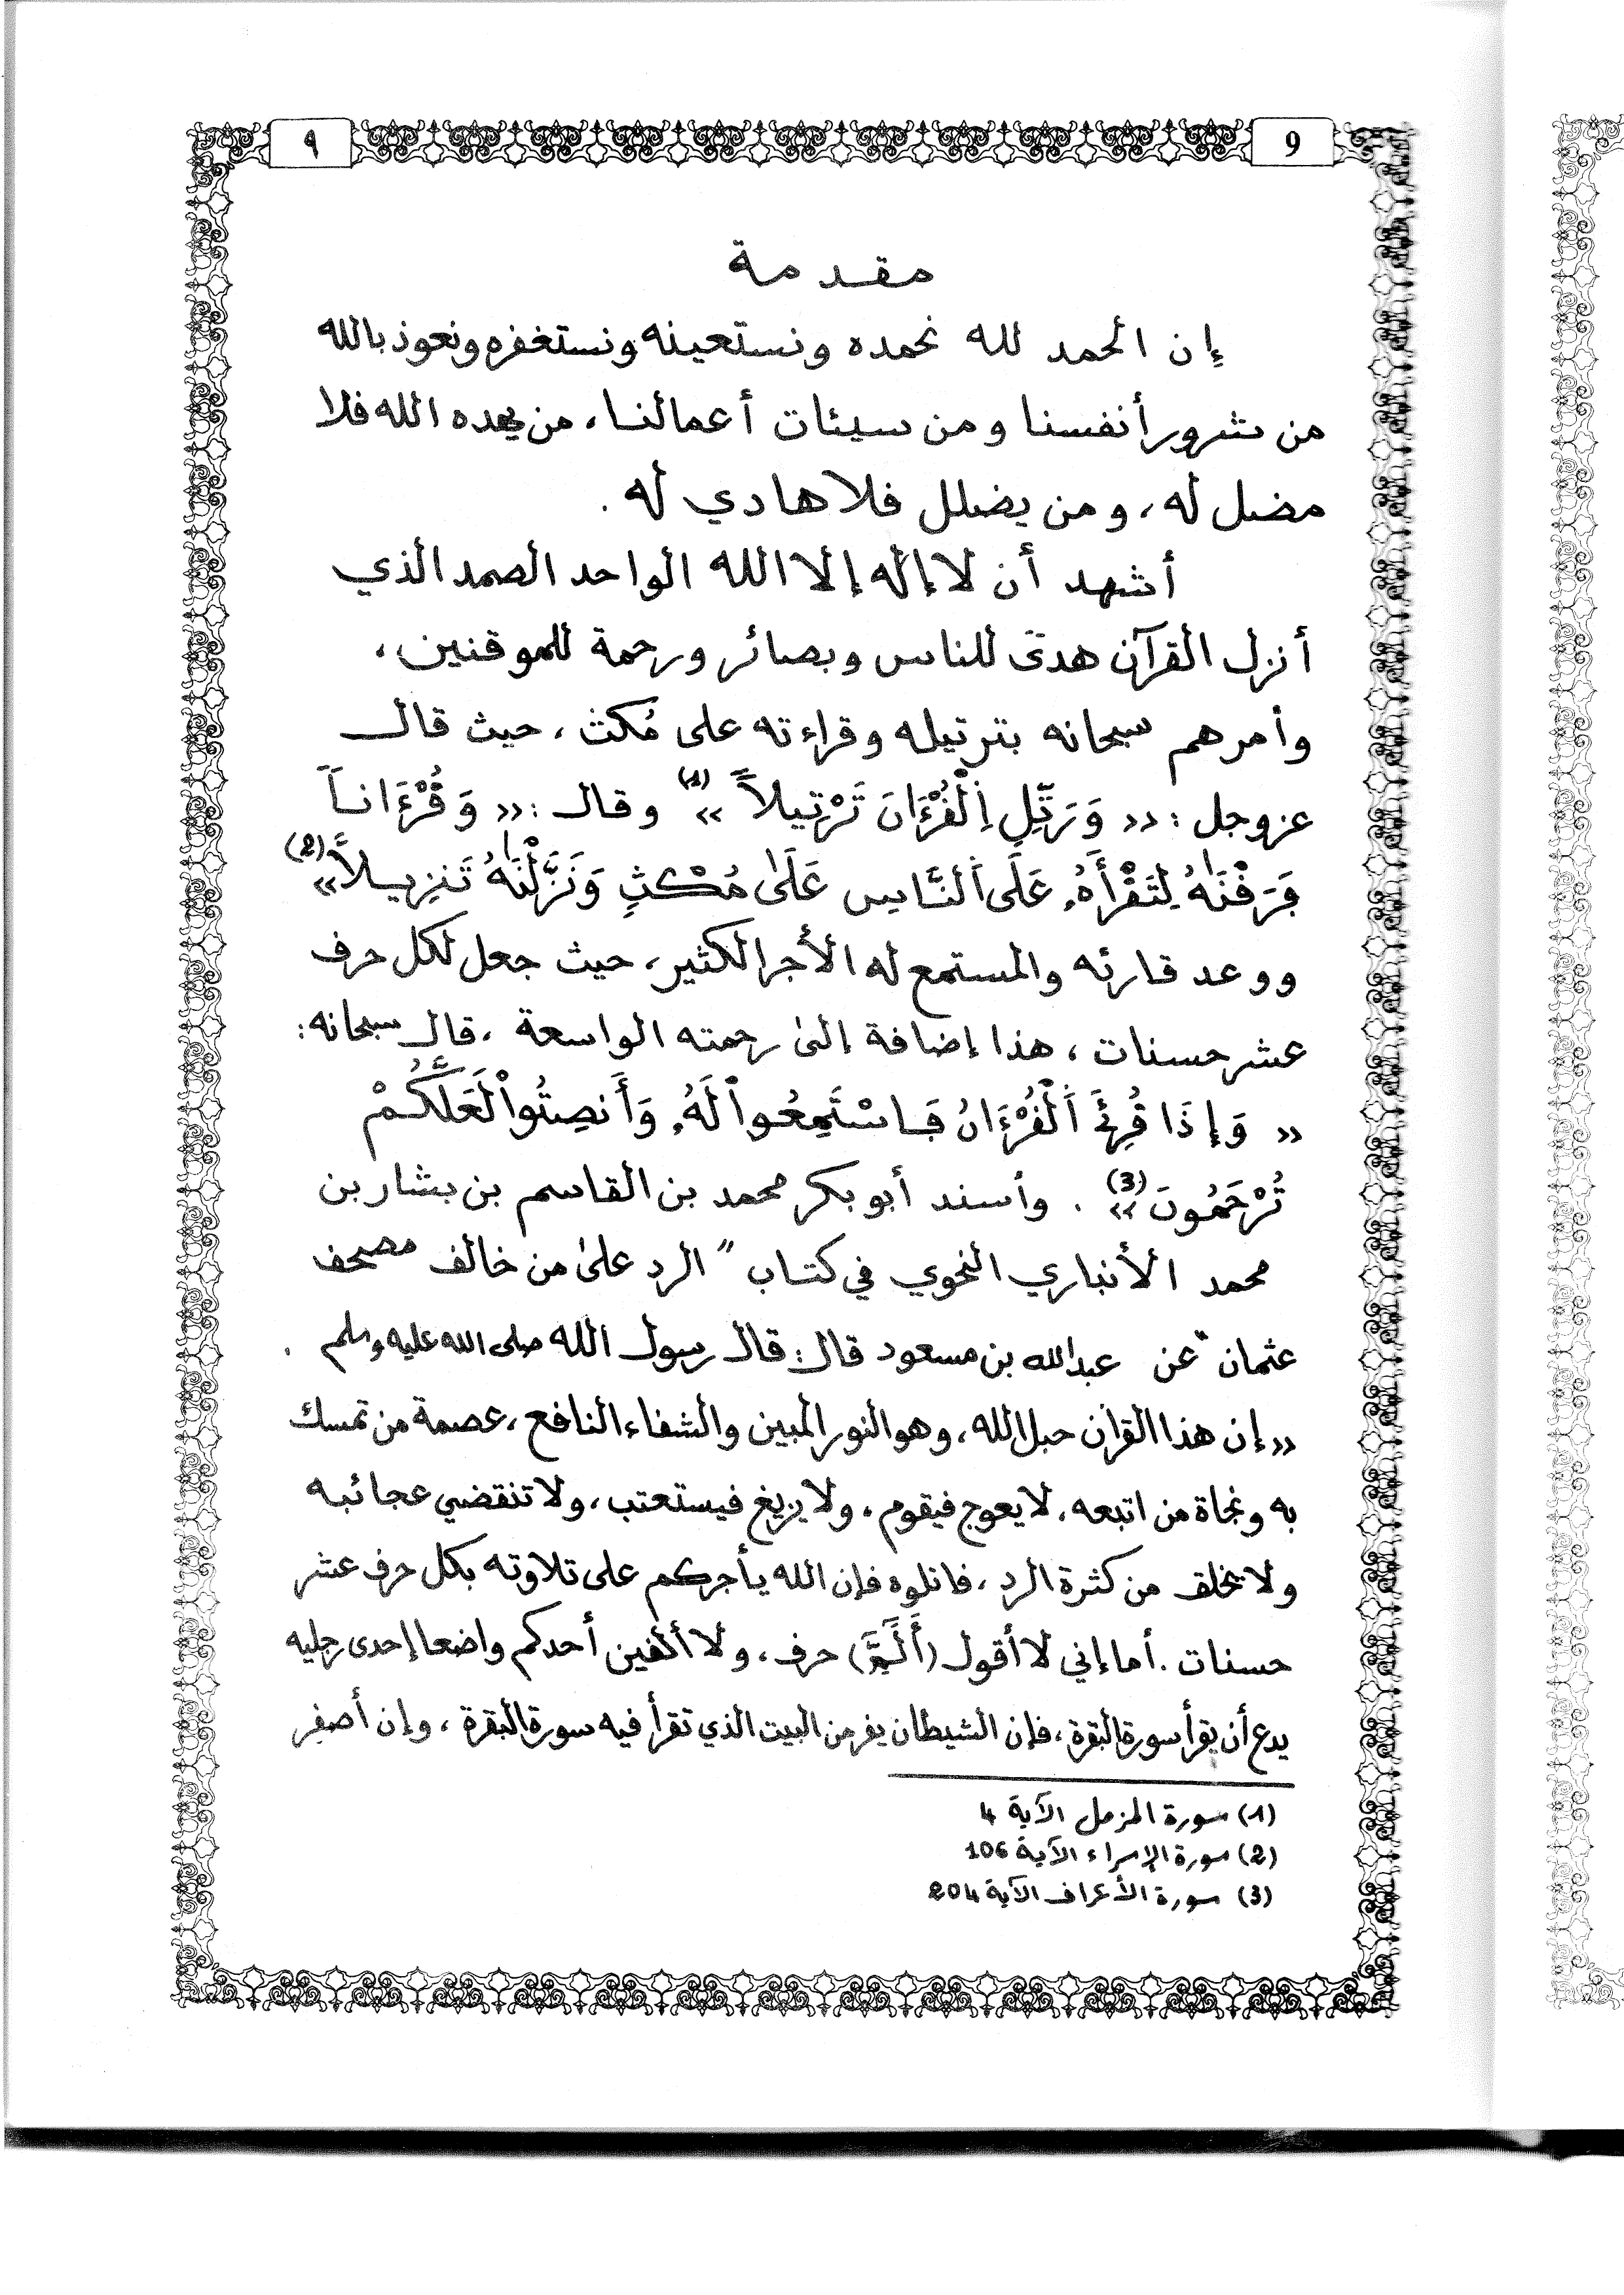 ٩
9
مقدمة
إن الحمد لله نحمده ونستعينه ونستغفره ونعوذ بالله
من شرور أنفسنا ومن سيئات أعمالنا، من يهده الله فلا
مضل له، ومن يضلل فلا هادي له.
أشهد أن لا إله إلا الله الواحد الصمد الذي
أنزل القرآن هدى للناس وبصائر ورحمة للموقنين،
وأمرهم سبحانه بترتيله وقراءته على مُكث، حيث قال
عز وجل: «وَرَتِّلِ اِلْقُرْءَانَ تَرْتِيلاً» (1) وقال: «وَقُرْءَاناً
فَرَقْنَٰهُ لِتَقْرَأَهُۥ عَلَى اَلنَّاسِ عَلَىٰ مُكْثٍ وَنَزَّلْنَٰهُ تَنزِيلاً» (2)
ووعد قارئه والمستمع له الأجر الكثير، حيث جعل لكل حرف
عشر حسنات، هذا إضافة إلىٰ رحمته الواسعة، قال سبحانه:
«وَإِذَا قُرِئَ اَلْقُرْءَانُ فَاسْتَمِعُواْ لَهُۥ وَأَنصِتُواْ لَعَلَّكُمْ
تُرْحَمُونَ» (3). وأسند أبو بكر محمد بن القاسم بن بشار بن
محمد الأنباري النحوي في كتاب "الرد علىٰ من خالف مصحف
عثمان" عن عبد الله بن مسعود قال: قال رسول الله صلى الله عليه وسلم.
«إن هذا القرآن حبل الله، وهو النور المبين والشفاء النافع، عصمة من تمسك
به ونجاة من اتبعه، لا يعوج فيقوم، ولا يزيغ فيستعتب، ولا تنقضي عجائبه
ولا يخلق من كثرة الرد، فاتلوه فإن الله يأجركم على تلاوته بكل حرف عشر
حسنات. أما إني لا أقول (أَلَٓمِّٓ) حرف، ولا ألفين أحدكم واضعا إحدى رجليه
يدع أن يقرأ سورة البقرة، فإن الشيطان يفر من البيت الذي تقرأ فيه سورة البقرة، وإن أصفر
(1) سورة المزمل الآية 4
(2) سورة الإسراء الآية 106
(3) سورة الأعراف الآية 204